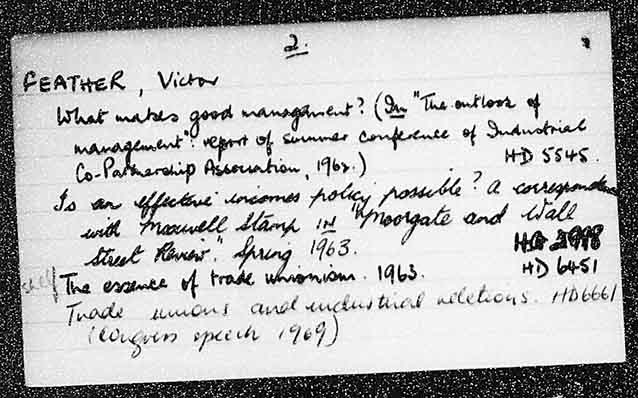 2.
FEATHER, Victor
What makes good management? (In "The outlook of
management": report of summer conference of Industrial
Co-Partnership Association, 1962.) HD 5545.
Is an effective incomes policy possible? A correspondence
with Maxwell Stamp IN "Moorgate and Wall
Street Review." Spring 1963.
shelf The essence of trade unionism. 1963. HD 6451
Trade unions and industrial relations. HD6661
(Congress speech 1969)